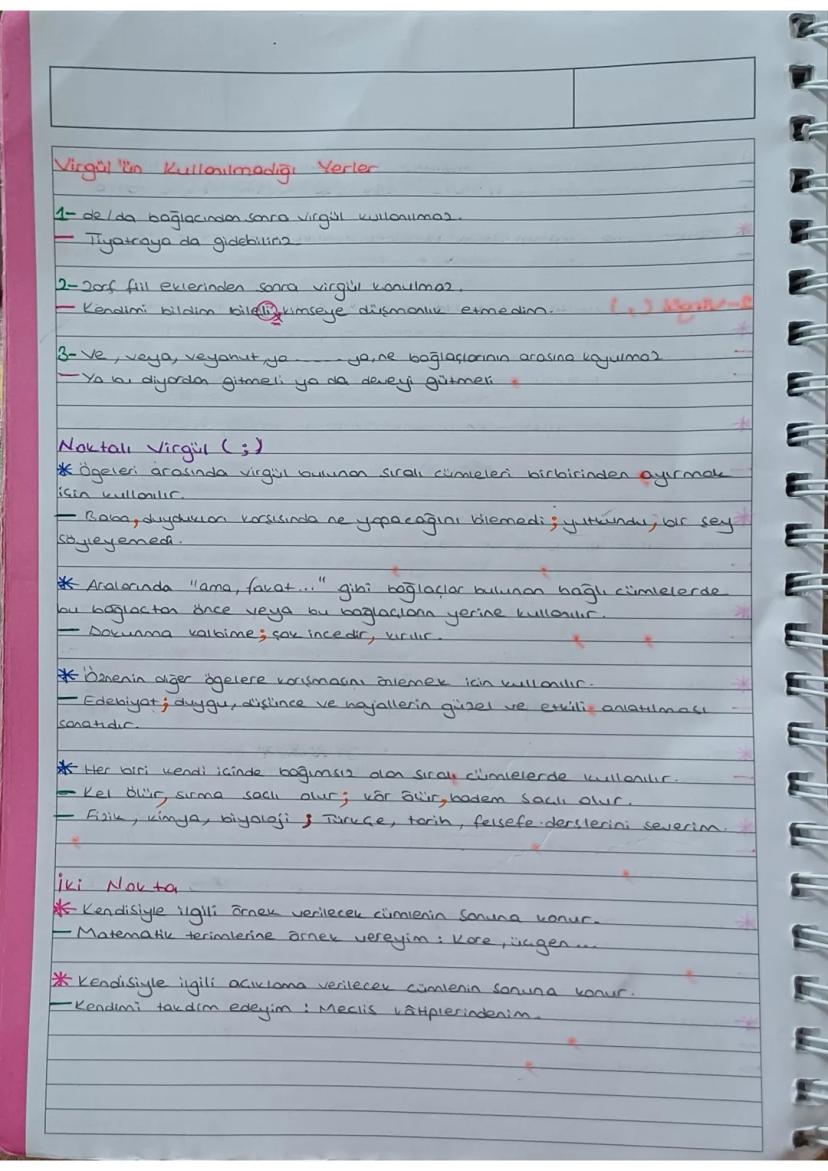 Virgül'ün Kullanılmadığı Yerler
1- de/da bağlacından sonra virgül kullanılmaz.
— Tiyatroya da gidebiliriz
2- zarf fiil eklerinden sonra virgül konulmaz.
— Kendimi bildim bileli kimseye düşmanlık etmedim.
3- Ve, veya, veyahut, ya ...... ya, ne bağlaçlarının arasına koyulmaz
— Ya bu diyardan gitmeli ya da deveyi gütmeli
Noktalı Virgül (;)
* Ögeleri arasında virgül bulunan sıralı cümleleri birbirinden ayırmak
için kullanılır.
— Baba, duydukları karşısında ne yapacağını bilemedi; yutkundu, bir şey
söyleyemedi.
* Aralarında "ama, fakat..." gibi bağlaçlar bulunan bağlı cümlelerde
bu bağlaçtan önce veya bu bağlaçların yerine kullanılır.
— Dokunma kalbime; çok incedir, kırılır.
* Öznenin diğer ögelere karışmasını önlemek için kullanılır.
— Edebiyat; duygu, düşünce ve hayallerin güzel ve etkili anlatılması
sanatıdır.
* Her biri kendi içinde bağımsız olan sıralı cümlelerde kullanılır.
— Kel ölür, sırma saçlı olur; kör ölür, badem saçlı olur.
— Fizik, kimya, biyoloji ; Türkçe, tarih, felsefe derslerini severim.
İki Nokta
* Kendisiyle ilgili örnek verilecek cümlenin sonuna konur.
— Matematik terimlerine örnek vereyim : Kare, üçgen...
* Kendisiyle ilgili açıklama verilecek cümlenin sonuna konur.
— Kendimi takdim edeyim : Meclis kâtiplerindenim.